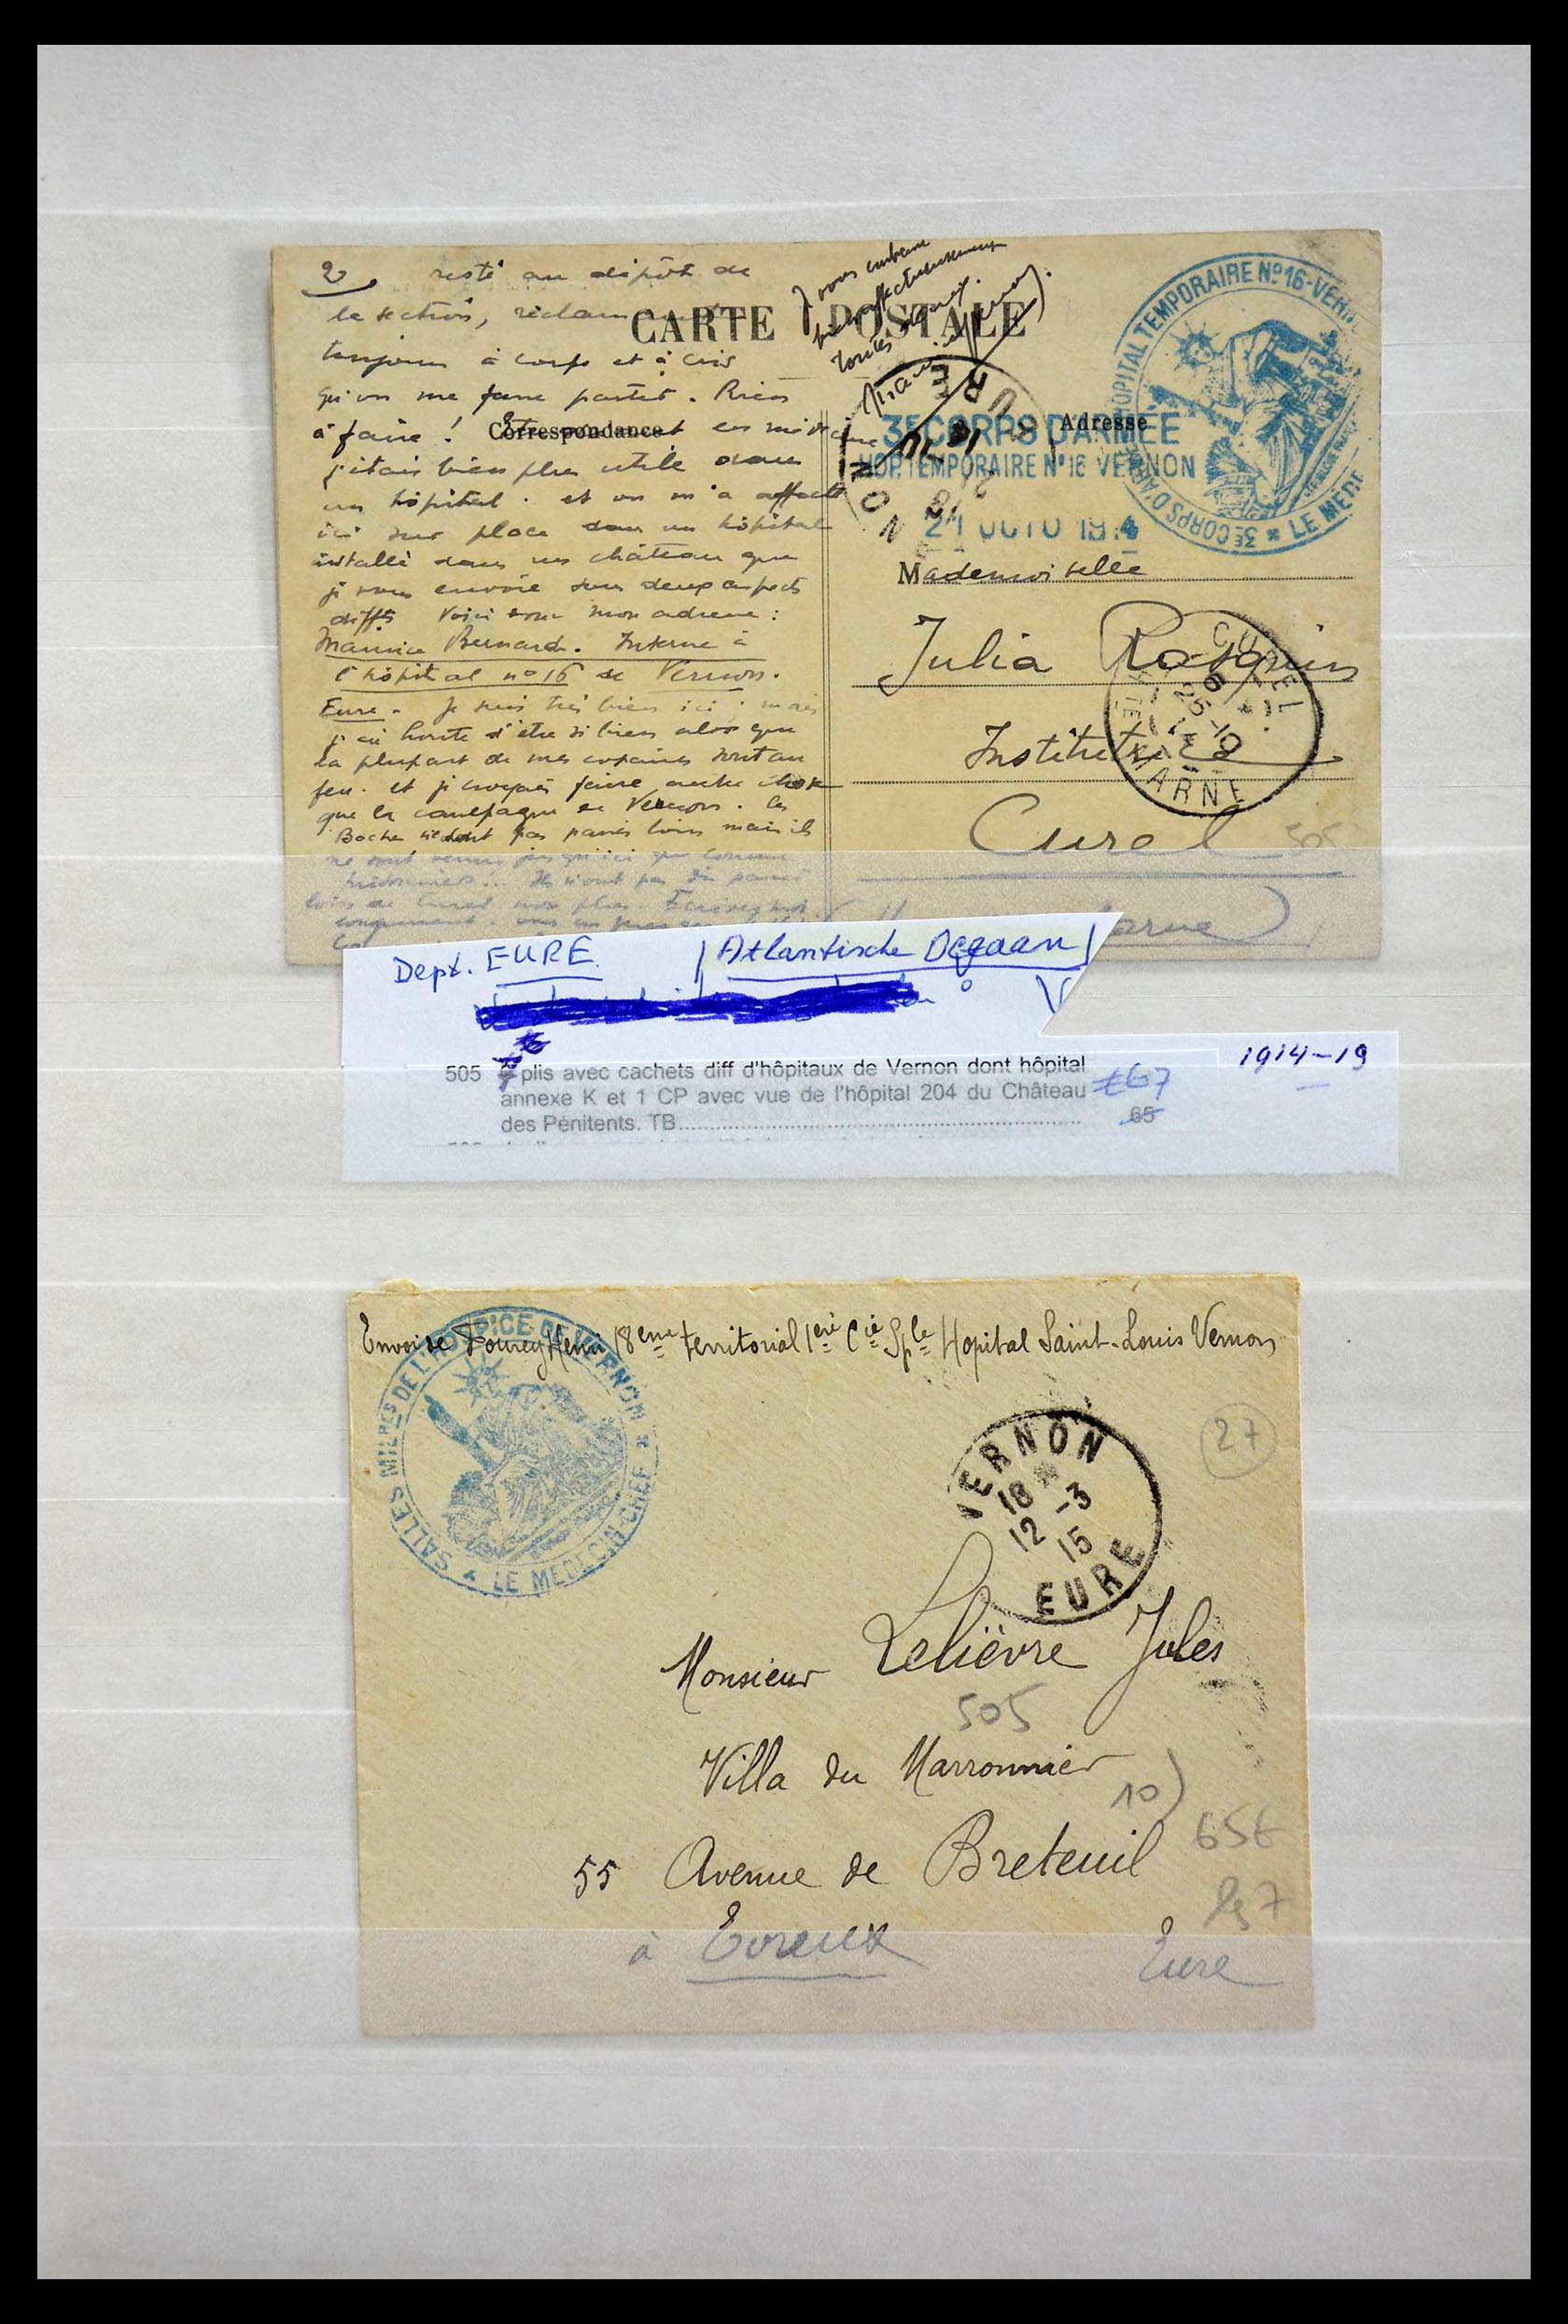 2) resté au dépôt de
la section, réclam
toujours à corps et à cris
qu'on me fasse partir. Rien
à faire ! en médecine
j'étais bien plus utile dans
un hôpital. et on m'a affecté
ici sur place dans un hôpital
installé dans un château que
je vous envoie sous deux aspects
diffts Voici donc mon adresse :
Maurice Bernard. Interne à
l'hôpital no 16 de Vernon.
Eure. Je suis très bien ici ; mais
j'ai honte d'être si bien alors que
la plupart de mes copains sont au
feu. et je croyais faire autre chose
que la campagne de Vernon. Les
Boches ne sont pas passés loin mais ils
ne sont venus jusqu'ici que comme
prisonniers... Ils n'ont pas dû passer
loin de Curel non plus. Ecrivez moi
longuement.
Je vous embrasse
affectueusement
toutes
CARTE POSTALE
Correspondance
Adresse
EURE
3E CORPS D'ARMÉE
HOP. TEMPORAIRE N° 16 VERNON
21 OCTO 1914
HOPITAL TEMPORAIRE N° 16-VERN
3E CORPS D'ARMÉE * LE MÉDE
Mademoiselle
Julia
Institutrice
Curel
CUREL
25-10
MARNE
505
Marne
Dept. EURE (Atlantische Oceaan)
1914-19
505 6 plis avec cachets diff d'hôpitaux de Vernon dont hôpital
annexe K et 1 CP avec vue de l'hôpital 204 du Château
des Pénitents. TB
€67
65
Envoi de Fourey Henri 18eme territorial 1ere Cie Sple Hopital Saint-Louis Vernon
SALLES MILRES DE L'HOSPICE DE VERNON * LE MEDECIN CHEF *
VERNON
18 *
12 -3
15
EURE
27
Monsieur Lelièvre Jules
505
Villa du Marronnier
10)
65€
55 Avenue de Breteuil
à Evreux
Eure